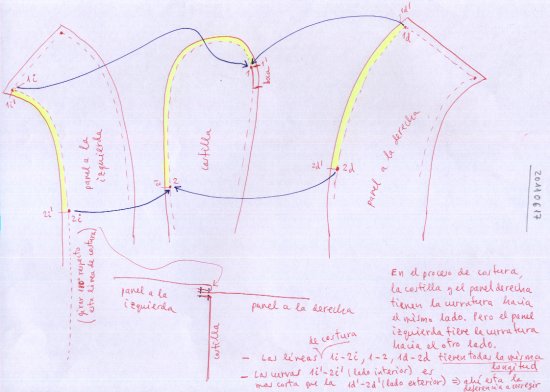 1d'
1d
1i
1i'
1
1'
boca
panel a la
izquierda
costilla
panel a la derecha
2i'
2i
2
2d'
2d
20170617
(girar 180° respecto
esta línea de costura)
panel a la
izquierda
panel a la derecha
costilla
En el proceso de costura,
la costilla y el panel derecha
tienen la curvatura hacia
el mismo lado. Pero el panel
izquierda tiene la curvatura
hacia el otro lado.
de costura
- Las líneas 1i-2i, 1-2, 1d-2d tienen todas la misma
longitud
- Las curvas 1i'-2i' (lado interior) es
mas corta que la 1d'-2d' (lado exterior) => ahí esta la
diferencia a corregir